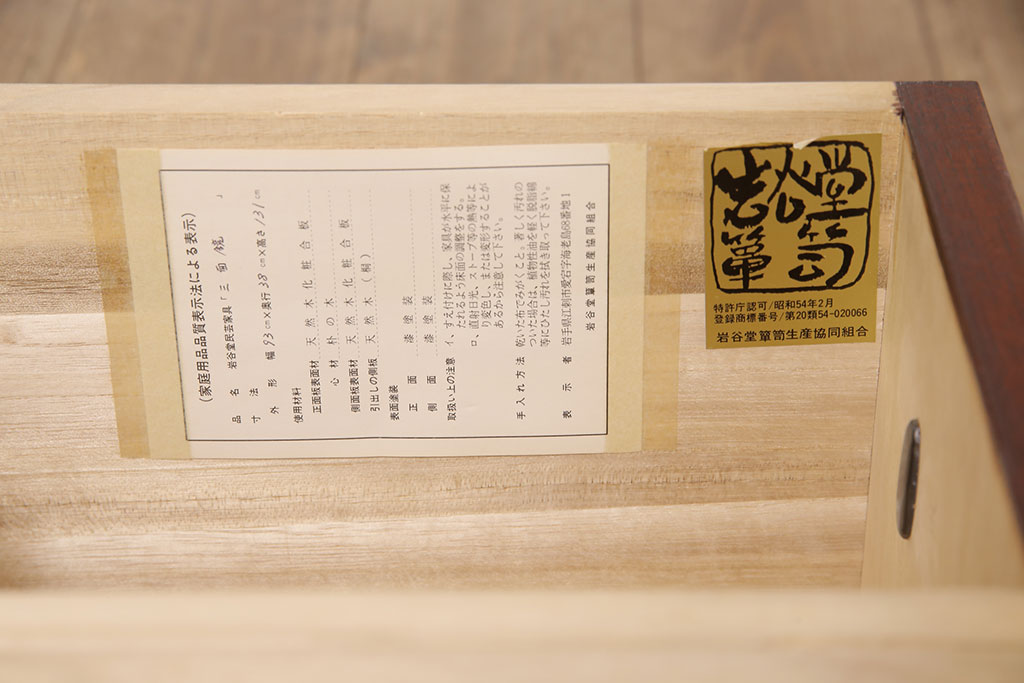 (家庭用品品質表示法による表示)
品名 岩谷堂民芸家具「三面鏡」
寸法
外形 幅93cm×奥行38cm×高さ131cm
使用材料
正面板表面材 天然木化粧合板
心材 朴の木
側面板表面材 天然木化粧合板
引出しの側板 天然木(桐)
表面塗装
正面 漆塗装
側面 漆塗装
取扱い上の注意 イ、すえ付けに際し、家具が水平に保
たれるよう床面の調整をする。
ロ、直射日光、ストーブ等の熱等によ
り変色し、または変形することが
あるから注意して下さい。
手入れ方法 乾いた布でみがくこと。著しく汚れの
ついた場合は、植物性油を軽く脱脂綿
等にひたし汚れを拭き取って下さい。
表示者 岩手県江刺市愛宕字海老島68番地1
岩谷堂簞笥生産協同組合
岩谷堂
簞笥
特許庁認可/昭和54年2月
登録商標番号/第20類54-020066
岩谷堂簞笥生産協同組合